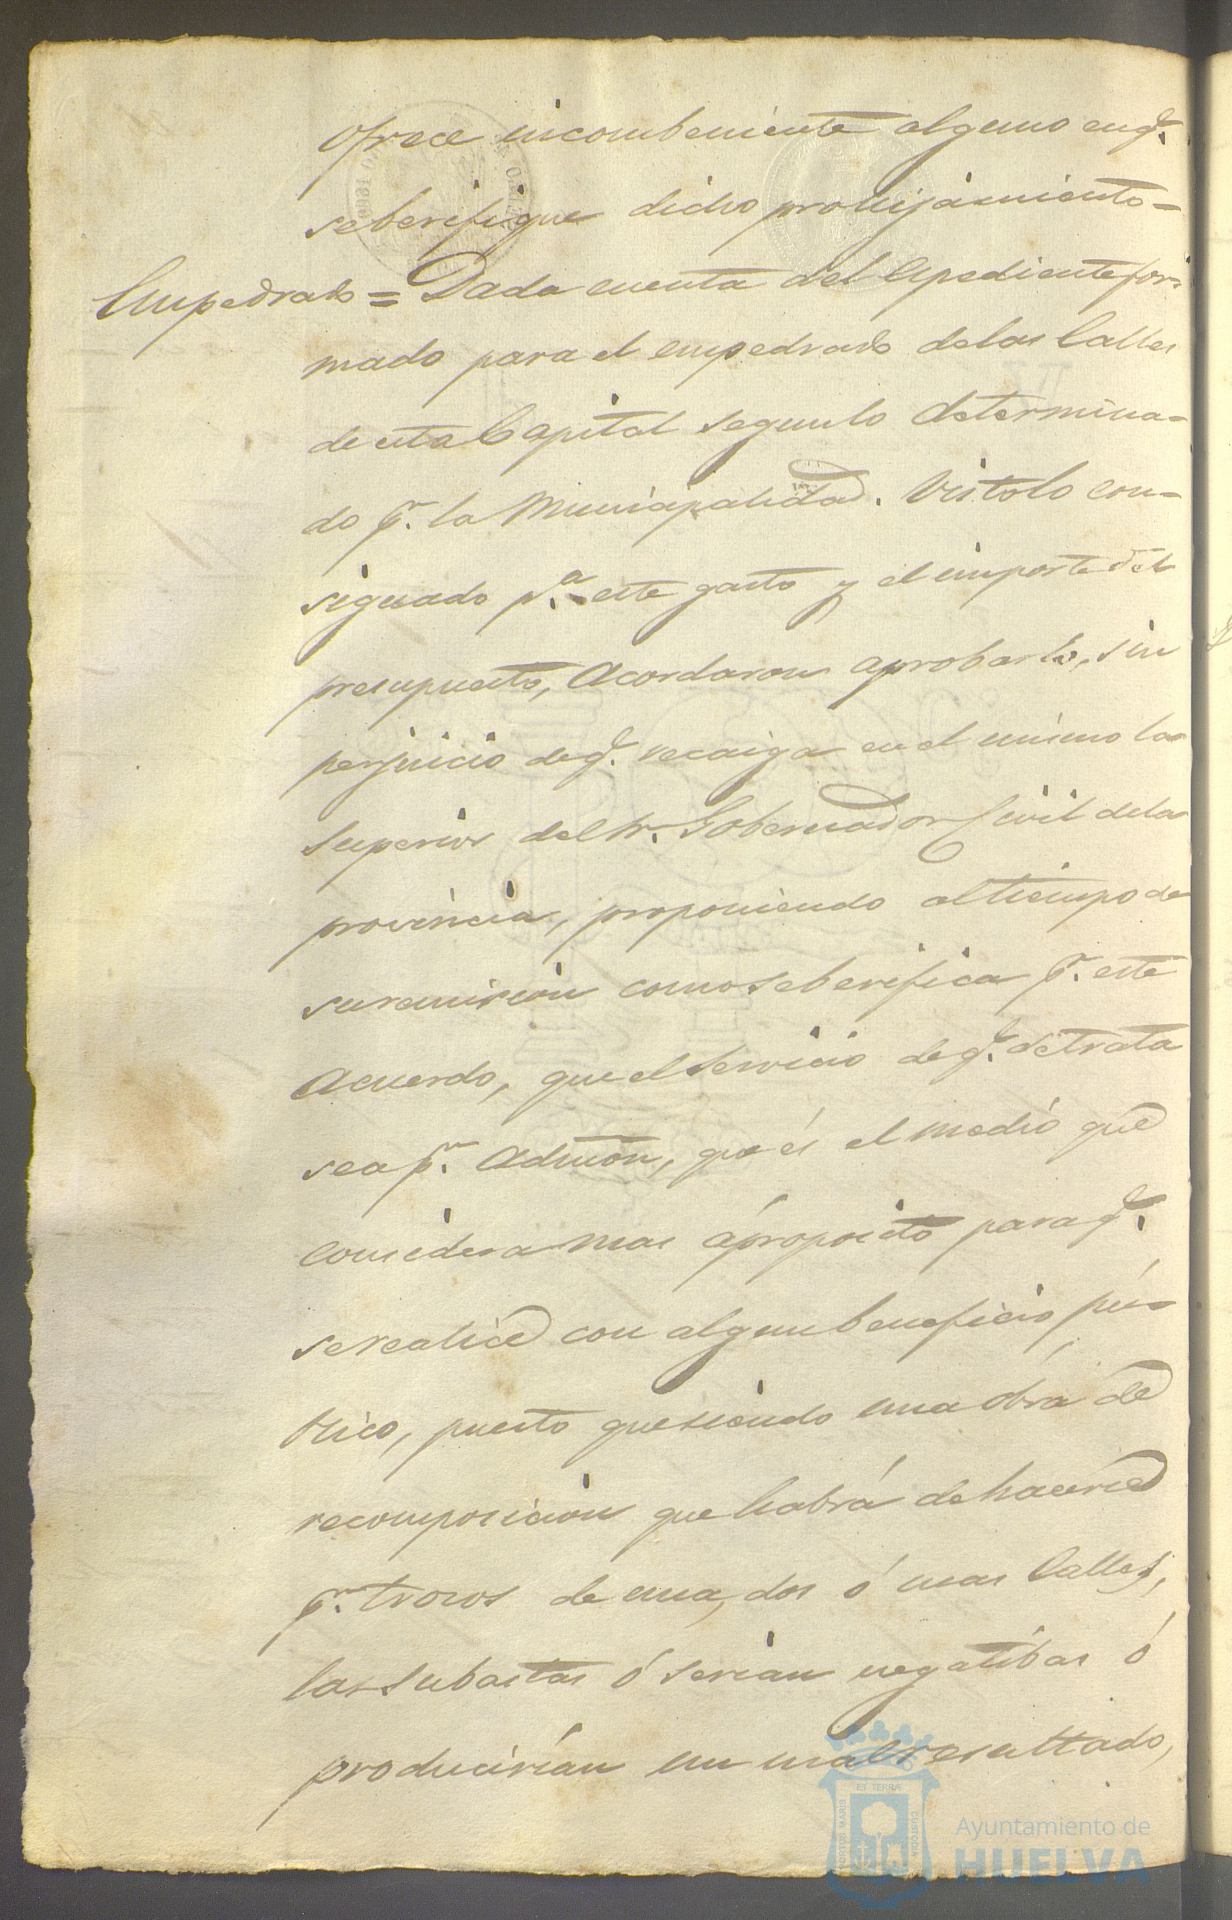 ofrece incombeniente alguno enq.e
seberifique dicho prohijamiento=
Empedrado = Dada cuenta del Epediente for-
mado para el empedrado delas Calles
de esta Capital segun lo determina-
do p.r la Municipalidad. Visto lo con-
signado p.a este gasto y el importe del
presupuesto, Acordaron aprobarlo, sin
perjuicio deq.e recaiga en el mismo la
superior del Sr. Gobernador Civil dela
provincia, proponiendo al tiempo de
suremision como seberifica p.r este
Acuerdo, que el servicio deq.e setrata
sea p.r Admon, que és el medió que
considera mas ápropósito paraq.e
serealice con algun beneficio pú-
blico, puesto que siendo una óbra de
recomposicion que habrá de hacerse
p.r trozos de una, dos ó mas Calles,
las subastas ó serian negatibas ó
producirían un mal resultado,
Ayuntamiento de
HUELVA